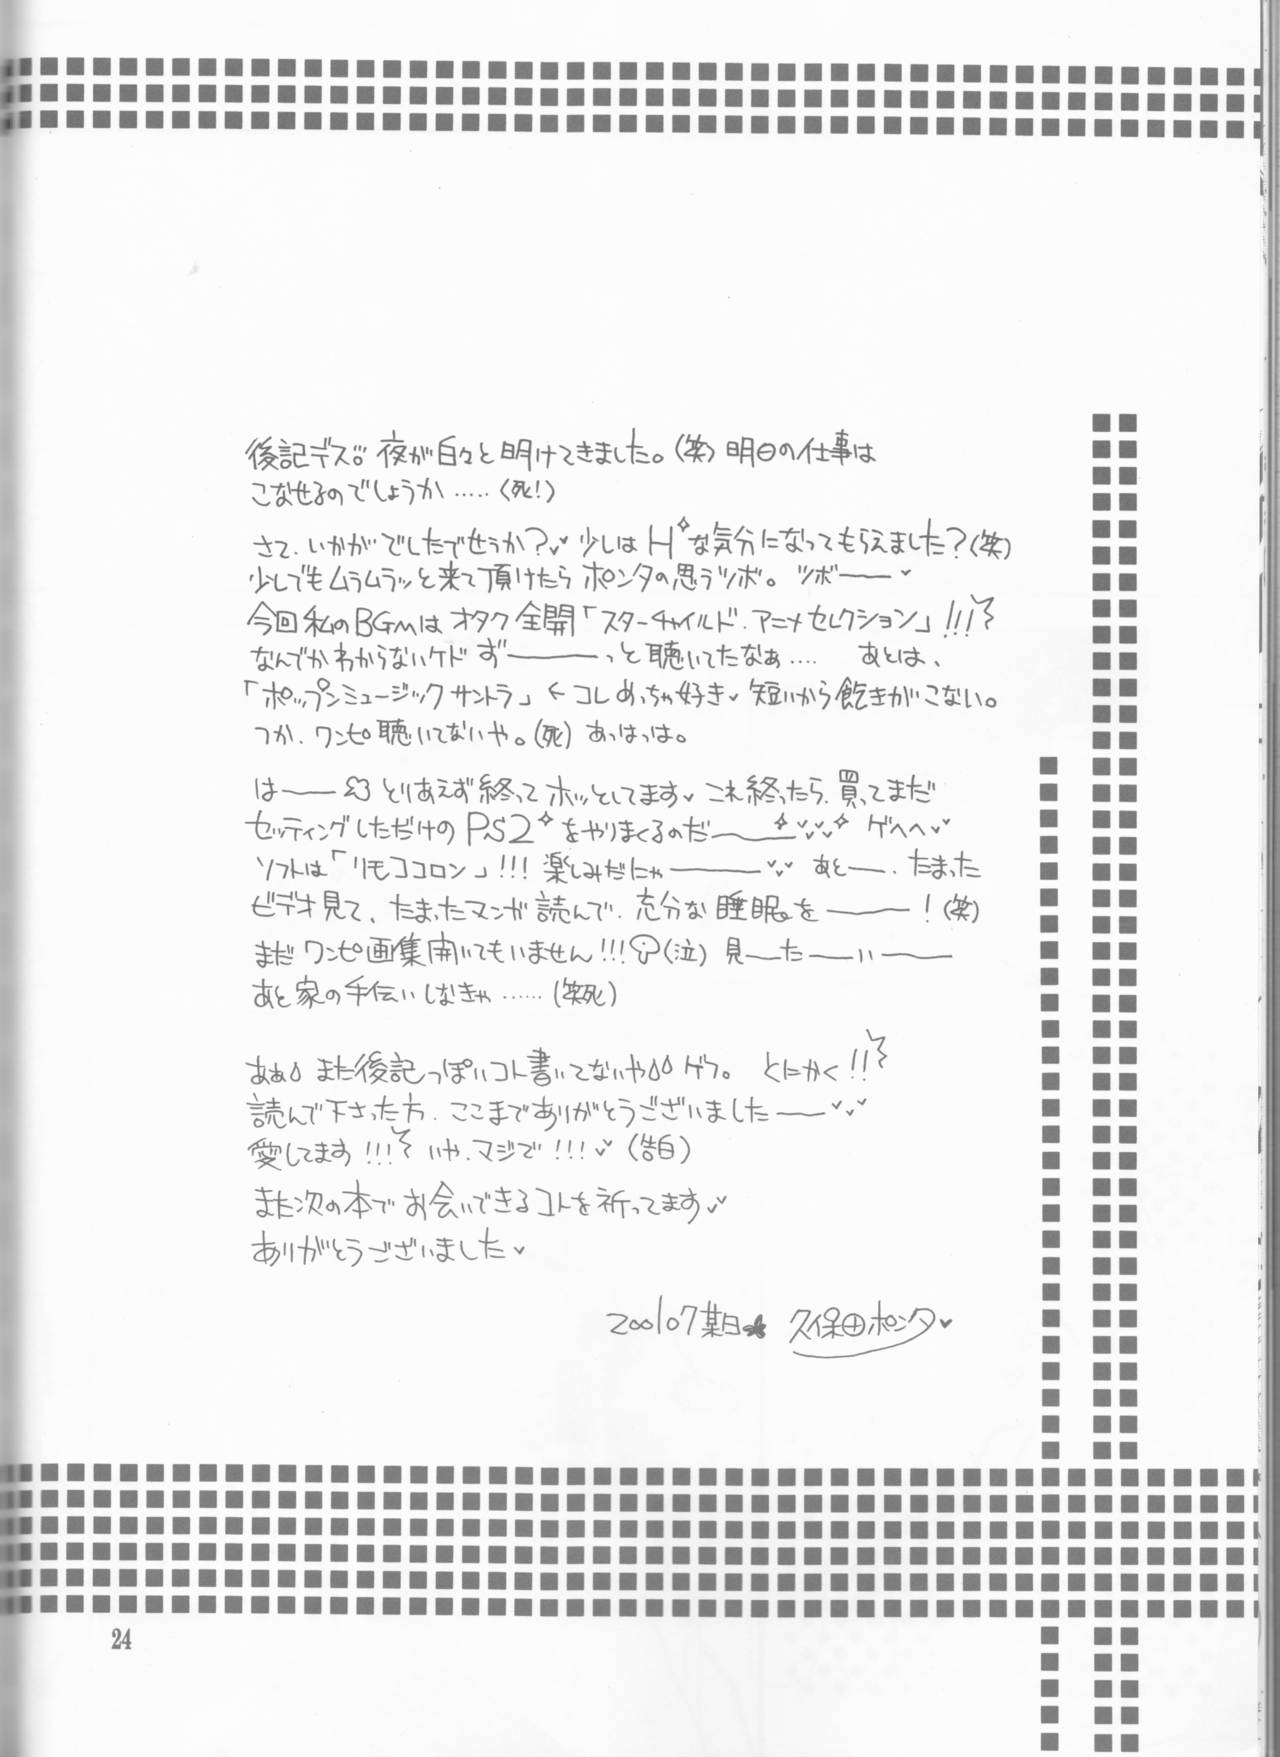 後記デス。夜が白々と明けてきました。(笑) 明日の仕事は
こなせるのでしょうか…..(死!)
さて、いかがでしたでせうか?♥ 少しはHな気分になってもらえました?(笑)
少しでもムラムラッと来て頂けたらポンタの思うツボ。ツボ——♥
今回私のBGMはオタク全開「スターチャイルド・アニメセレクション」!!!
なんでかわからないケドず———っと聴いてたなぁ…. あとは、
「ポップンミュージックサントラ」←コレめっちゃ好き♥短いから飽きがこない。
つか、ワンピ聴いてないや。(死) あっはっは。
は—— とりあえず終ってホッとしてます♥ これ終ったら、買ってまだ
セッティングしただけのPS2をやりまくるのだ———♥♥ ゲヘヘ♥
ソフトは「リモココロン」!!! 楽しみだにゃ———♥♥ あと—、たまった
ビデオ見て、たまったマンガ読んで、充分な睡眠を———!(笑)
まだワンピ画集開いてもいません!!!(泣) 見—た—い——
あと家の手伝いしなきゃ……(笑死)
あぁ また後記っぽいコト書いてないや ゲフ。 とにかく!!
読んで下さった方、ここまでありがとうございました——♥♥
愛してます!!! いや、マジで!!!♥ (告白)
また次の本でお会いできるコトを祈ってます♥
ありがとうございました♥
200107某日 久保田ポンタ♥
24